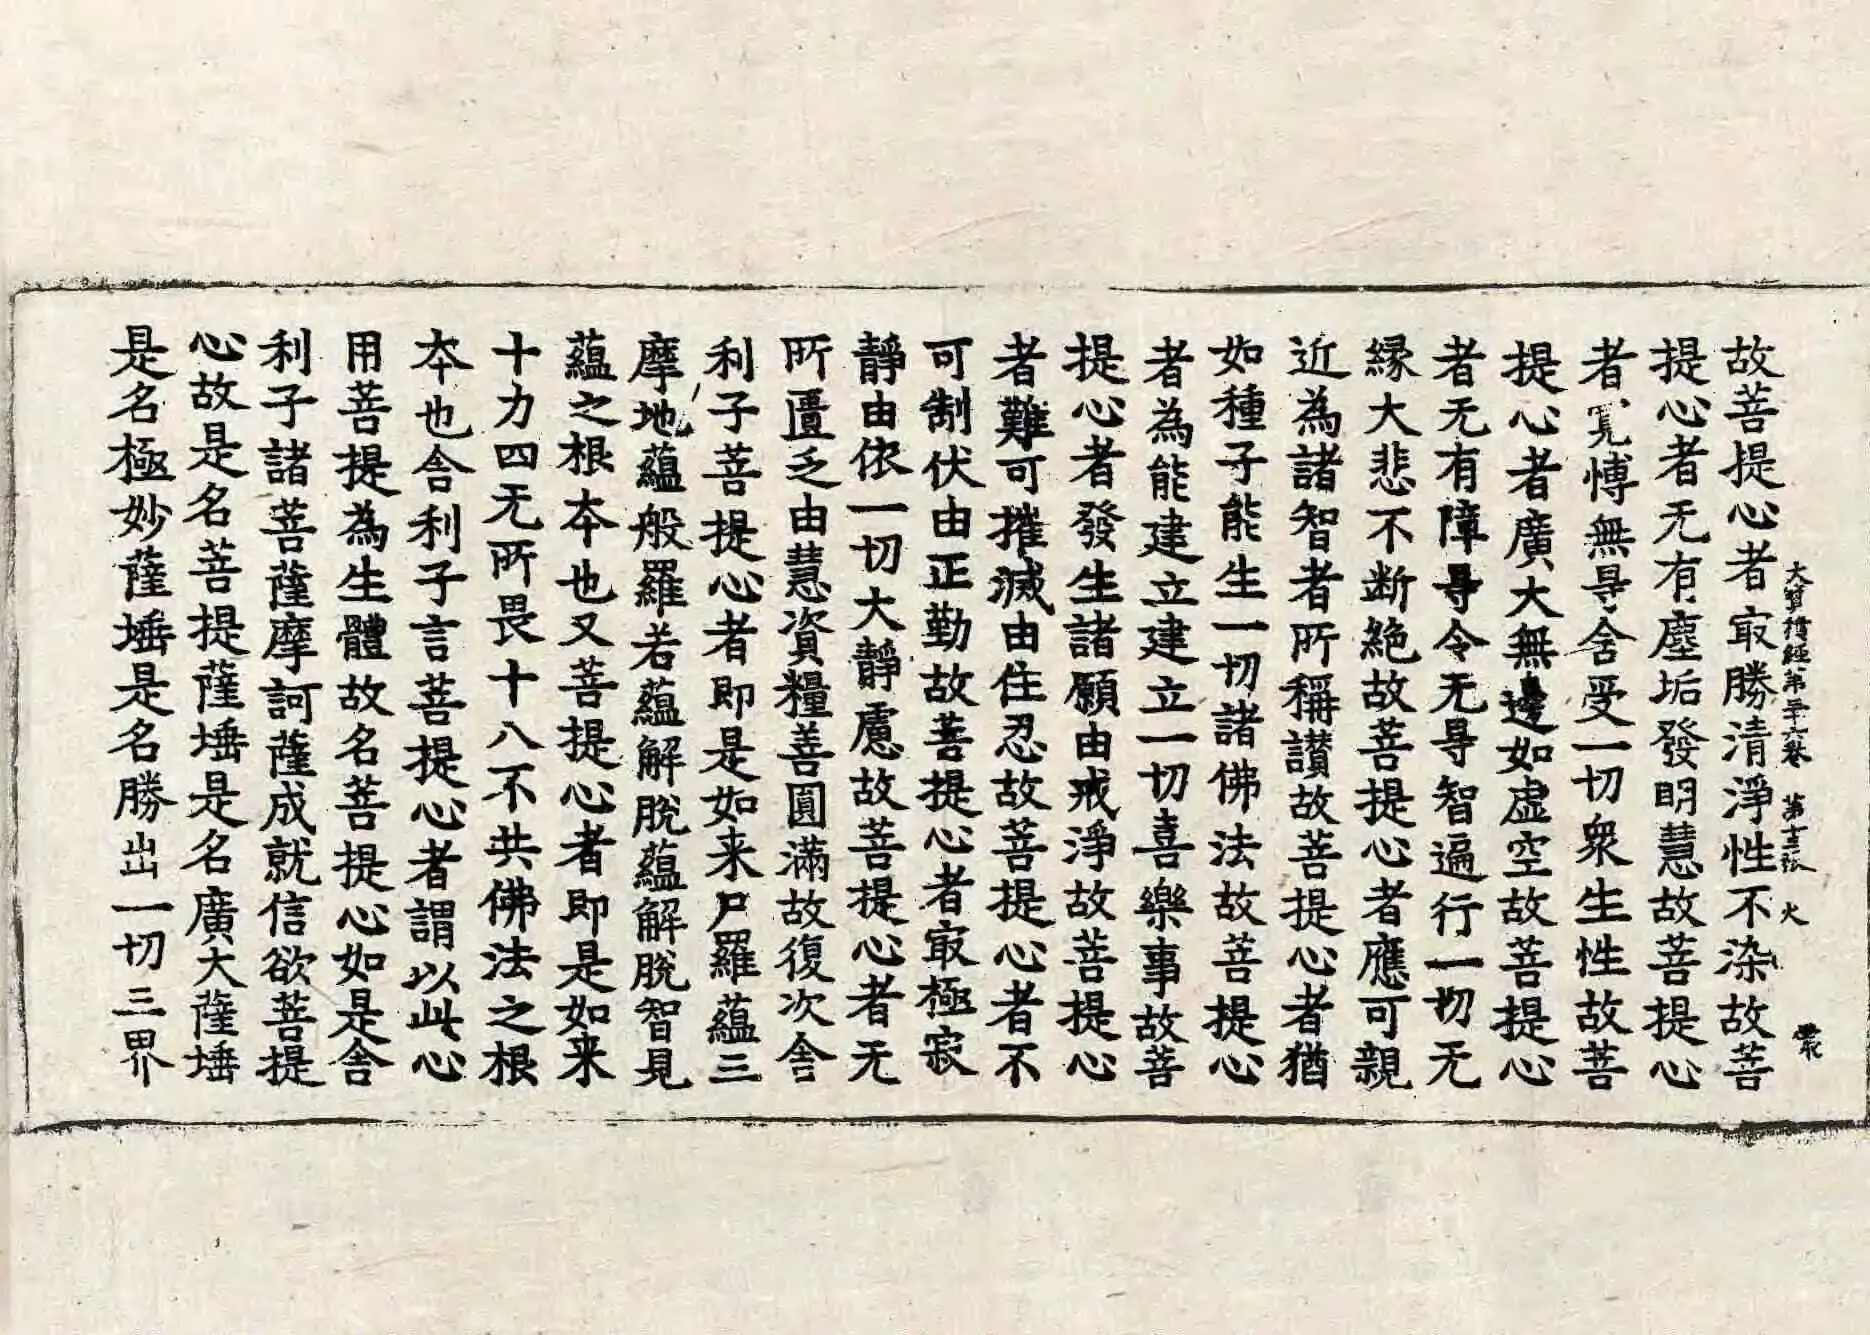 大寶積經第三十六卷 第十三張 火
故菩提心者㝡勝清淨性不染故菩
提心者无有塵垢發明慧故菩提心
者寬愽無㝵舍受一切衆生性故菩
提心者廣大無邊如虛空故菩提心
者无有障㝵令无㝵智遍行一切无
緣大悲不断絶故菩提心者應可親
近為諸智者所稱讃故菩提心者猶
如種子能生一切諸佛法故菩提心
者為能建立建立一切喜樂事故菩
提心者發生諸願由戒淨故菩提心
者難可摧滅由住忍故菩提心者不
可制伏由正勤故菩提心者㝡極寂
靜由依一切大靜慮故菩提心者无
所匱乏由慧資糧善圓滿故復次舍
利子菩提心者即是如来尸羅蘊三
摩地蘊般羅若蘊解脫蘊解脫智見
蘊之根夲也又菩提心者即是如来
十力四无所畏十八不共佛法之根
夲也舍利子言菩提心者謂以此心
用菩提為生體故名菩提心如是舍
利子諸菩薩摩訶薩成就信欲菩提
心故是名菩提薩埵是名廣大薩埵
是名極妙薩埵是名勝出一切三界